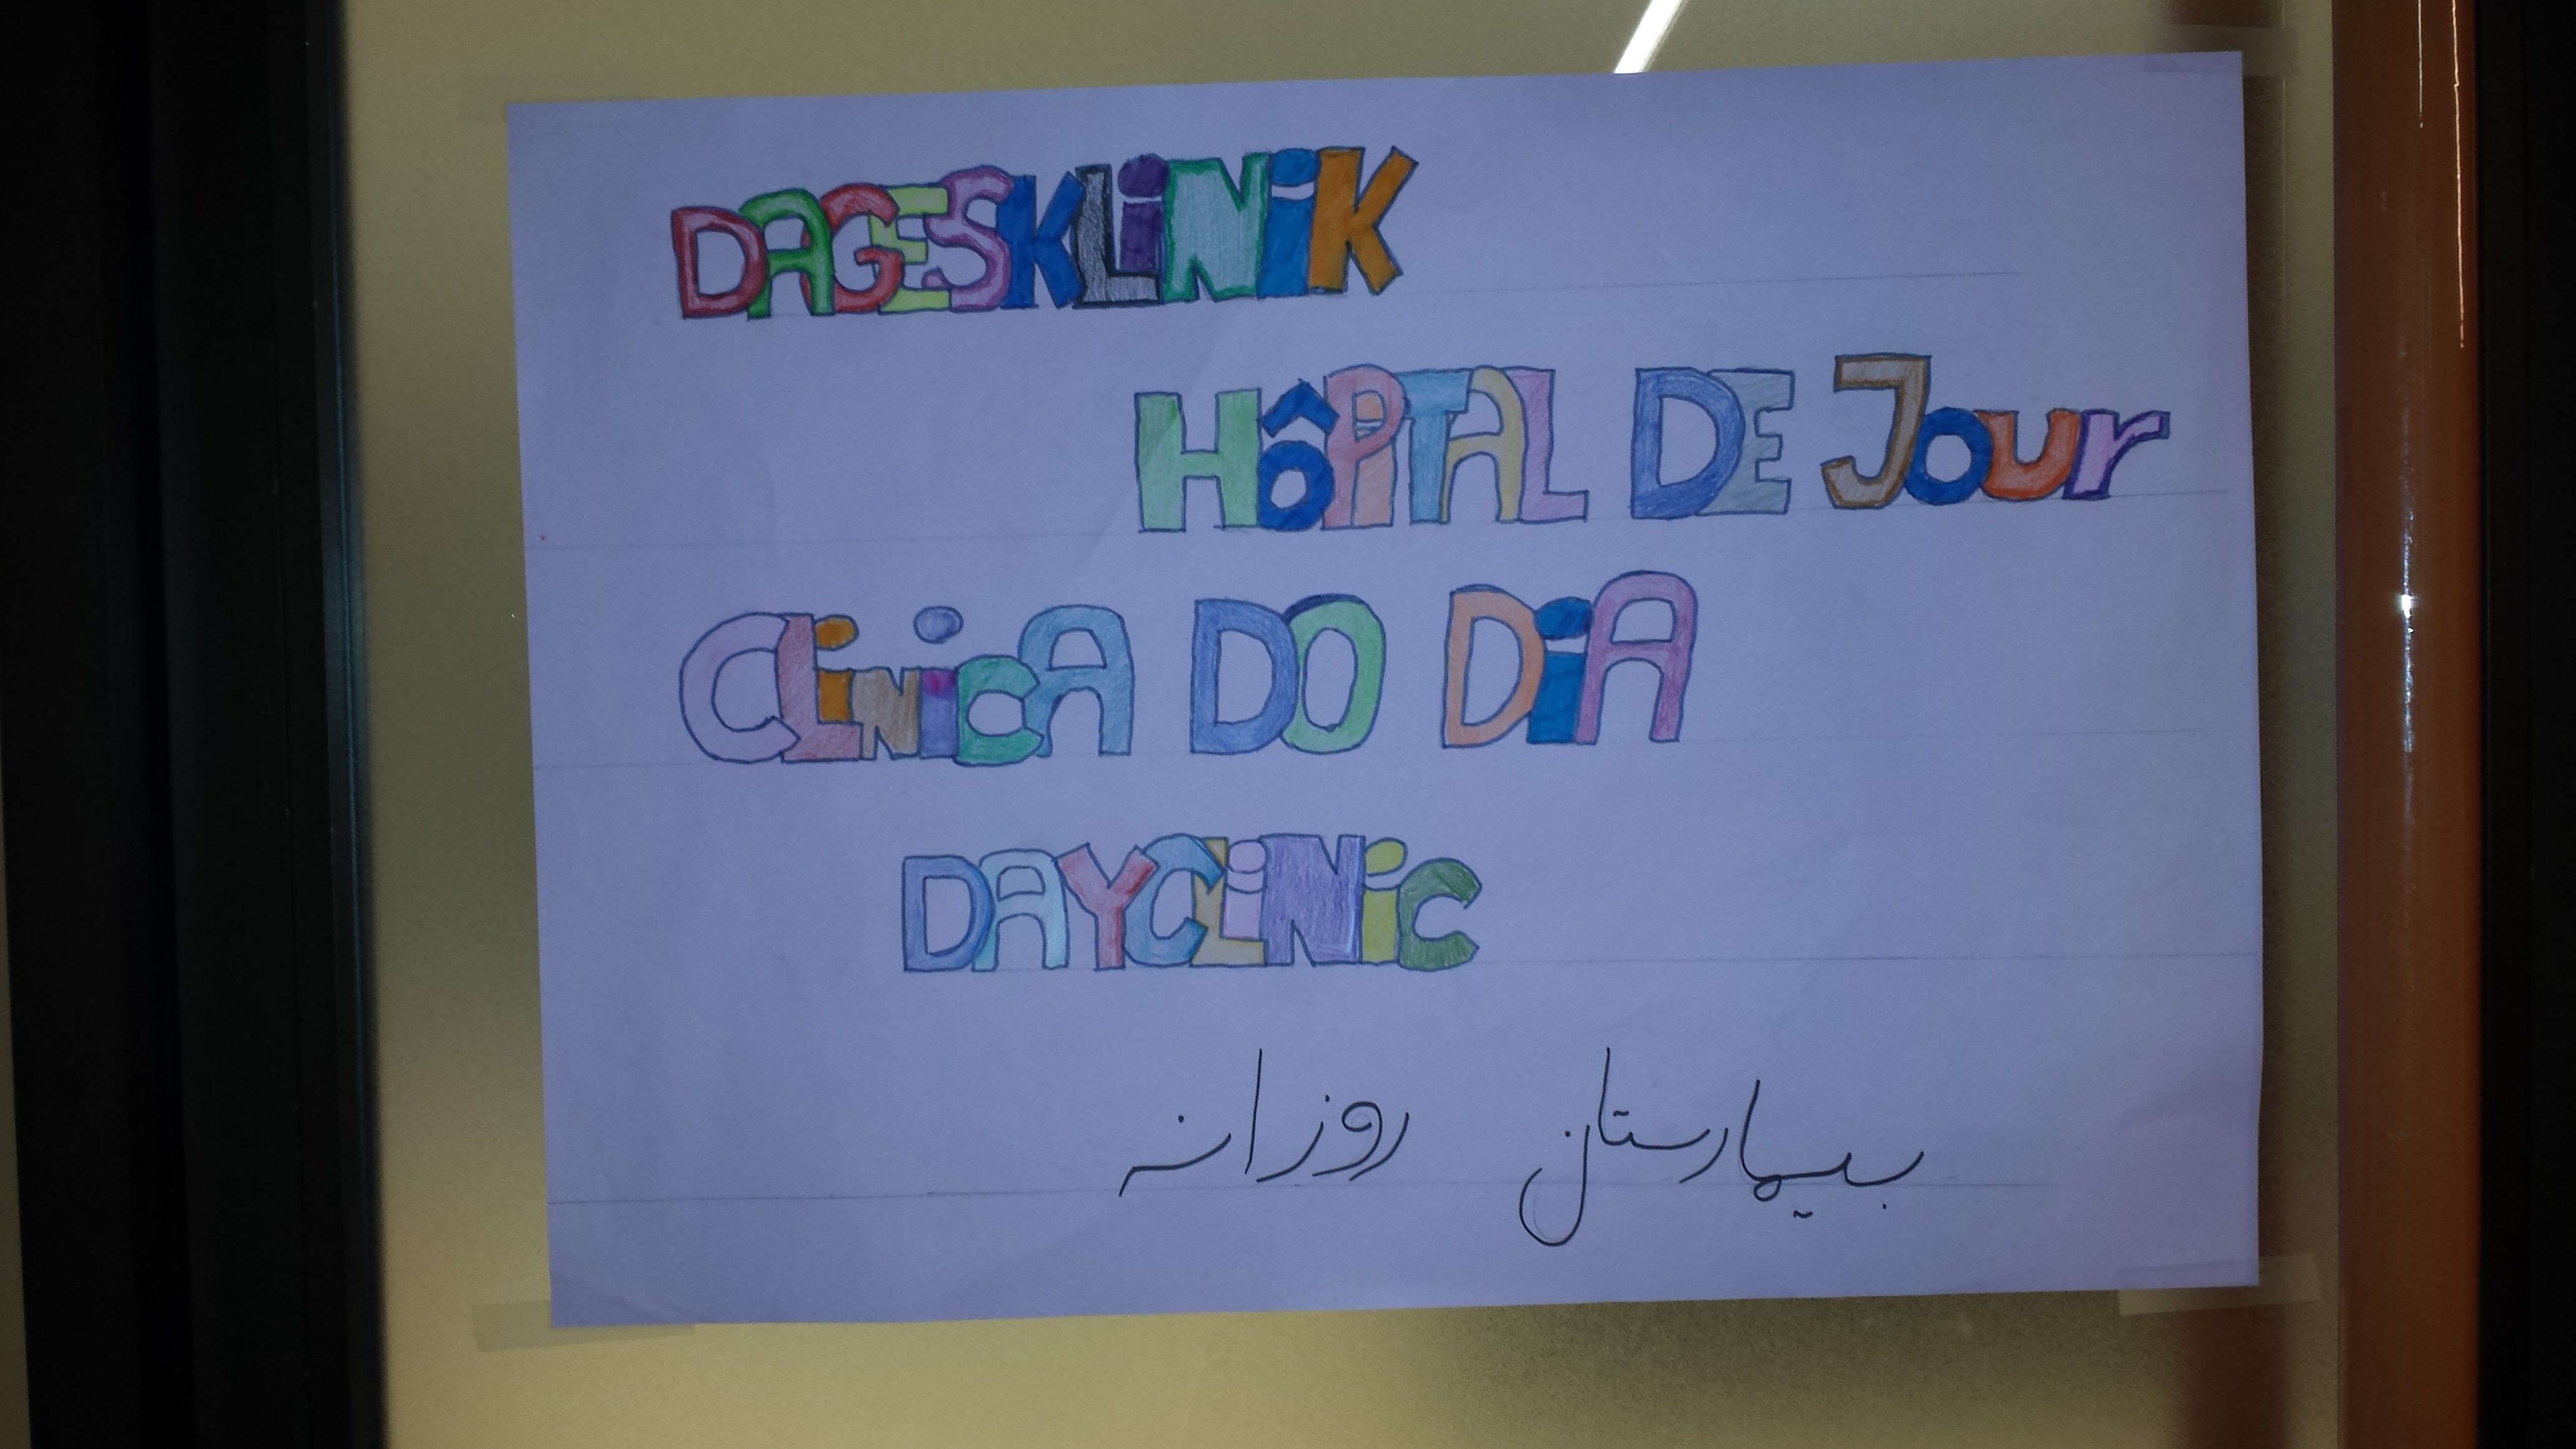 DAGESKLiNiK
HÔPITAL DE JOUr
CLiNiCA DO DiA
DAYCLiNiC
بیمارستان روزانه